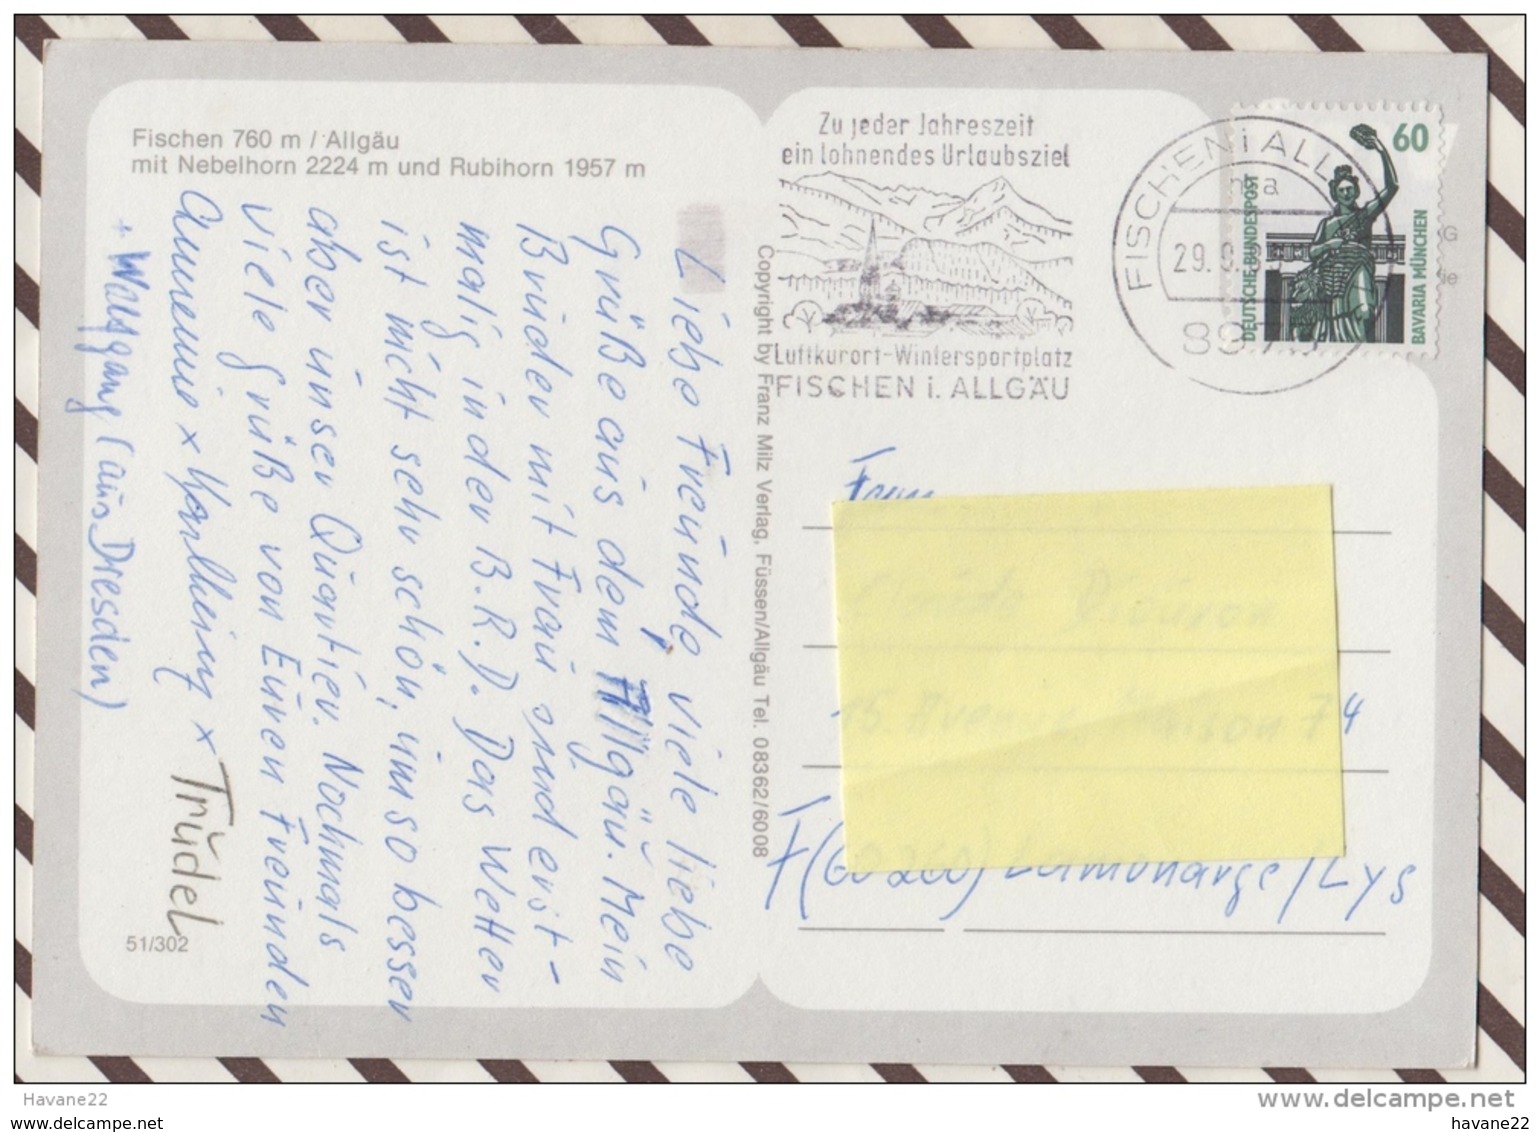 Fischen 760 m / Allgäu
mit Nebelhorn 2224 m und Rubihorn 1957 m
Liebe Freunde viele liebe
Grüße aus dem Allgäu. Mein
Bruder mit Frau sind erst-
malig in der B.R.D. Das Wetter
ist nicht sehr schön, umso besser
aber unser Quartier. Nochmals
viele Grüße von Euren Freunden
Annemie x Karlheinz x Trudel
+ Wolfgang (aus Dresden)
51/302
Copyright by Franz Milz Verlag, Füssen/Allgäu Tel. 08362/6008
Zu jeder Jahreszeit
ein lohnendes Urlaubsziel
Luftkurort-Wintersportplatz
FISCHEN i. ALLGÄU
FISCHEN i ALL
29.
60
DEUTSCHE BUNDESPOST
BAVARIA MÜNCHEN
15. Avenue, 74
F (60260) Lamorlaye / Lys
Havane22
www.delcampe.net
havane22 www.delcampe.net
havane22